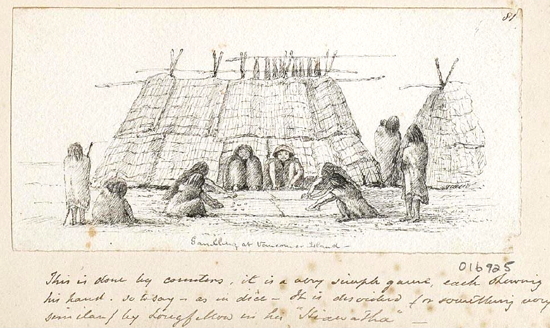 81
Gambling at Vancouver Island –
016925
This is done by counters, it is a very simple game, each shewing
his hand. so to say – as in dice – It is described (or something very
similar) by Longfellow in his "Hiawatha" –